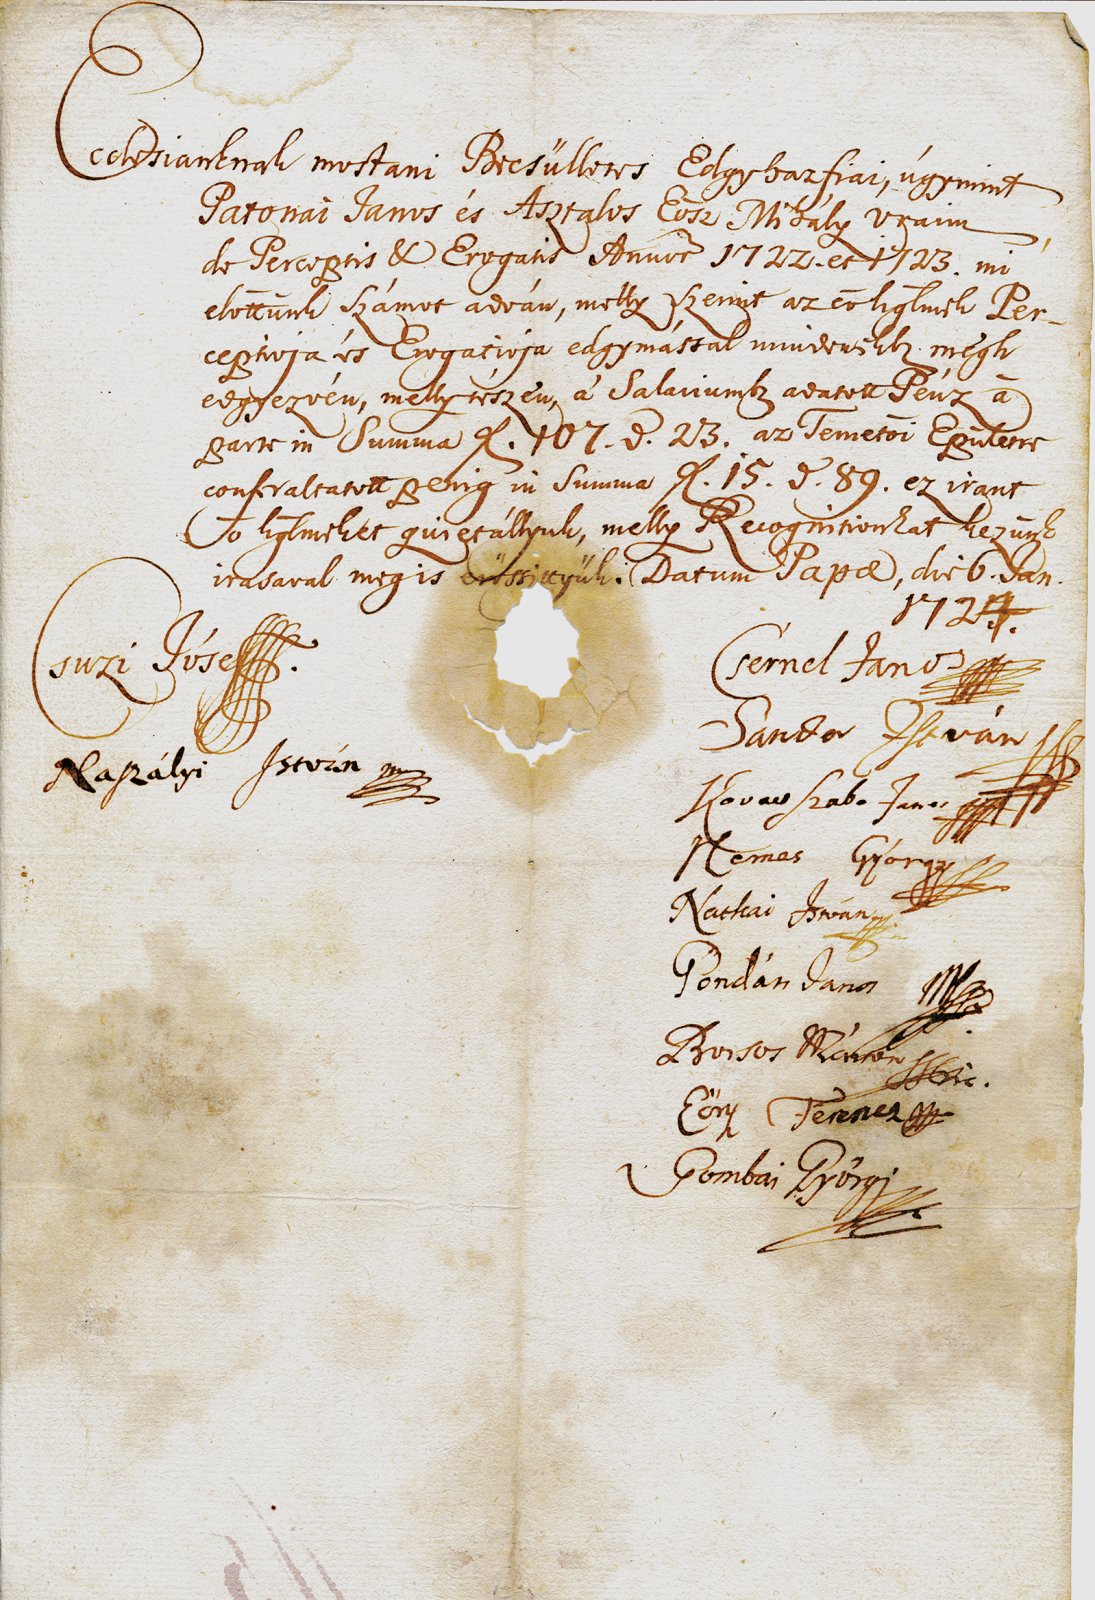 Eclesianknak mostani Becsülletes Edgyhazfiai, úgymint
Patonai Janos és Asztalos Eősz Mihály Vraim
de Perceptis & Erogatis Annor 1722. et 1723. mi
előttünk számot adván, melly szerint az eő kglmek Per-
ceptioja és Erogatioja edgymással mindenekb megh
edgyezvén, melly tészen, á Salariumb adatott Pénz á
parte in Summa fl. 107. d. 23. az Temetői Epületre
conferaltatott penig in Summa fl. 15. d. 89. ez irant
Eő kglmeket quietállyuk, melly Recognitionkat kezünk
irasaval meg is erössittyük. Datum Papæ, die 6. Jan.
1724.
Csuzi Jósef
Naszályi István mp
Csernel Janos
Sandor István
Kovacs Szabo Janos
Nemes György
Nathai István
Póndán Janos
Borsos Márton
Eőry Ferencz
Gombai György